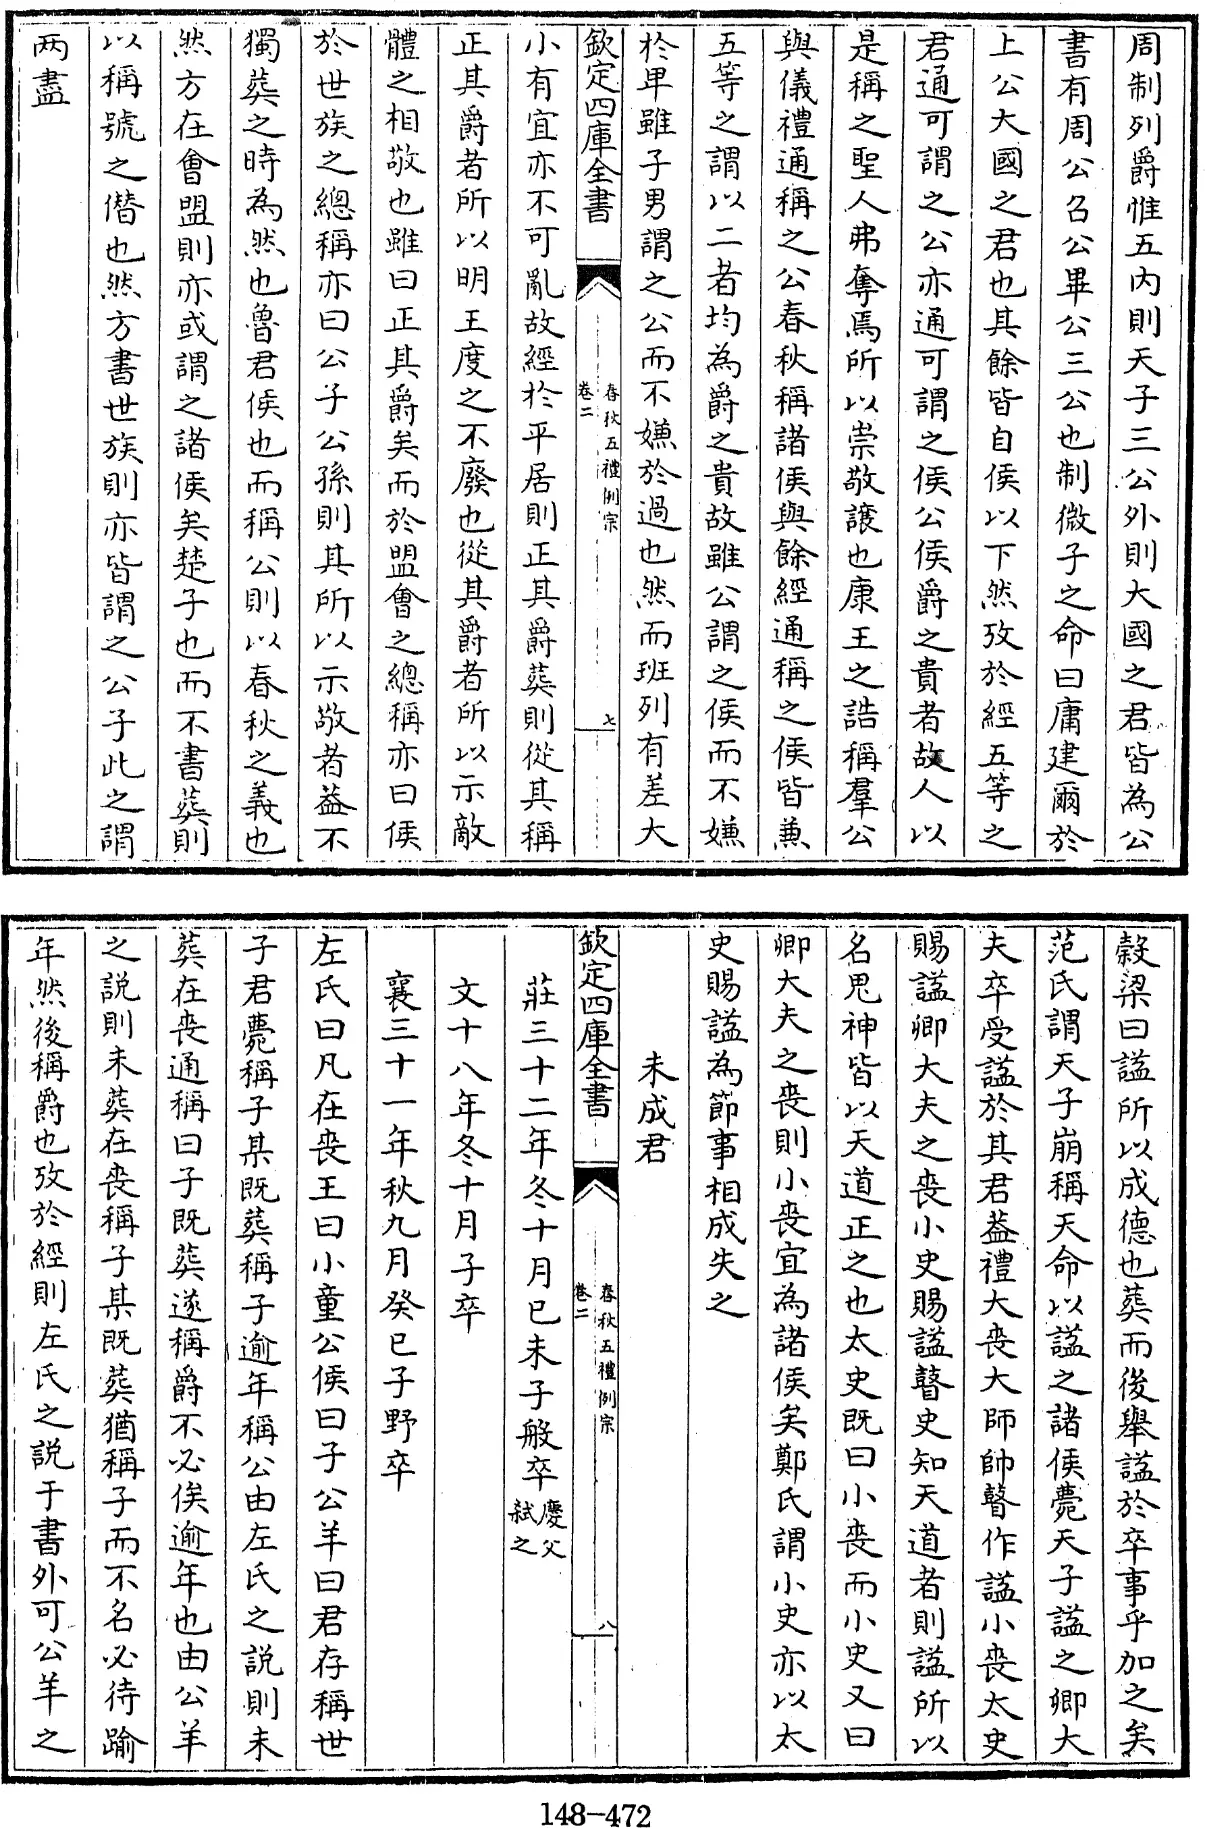 周制列爵惟五内則天子三公外則大國之君皆為公
書有周公召公畢公三公也制微子之命曰庸建爾於
上公大國之君也其餘皆自侯以下然攷於經五等之
君通可謂之公亦通可謂之侯公侯爵之貴者故人以
是稱之聖人弗奪焉所以崇敬讓也康王之誥稱羣公
與儀禮通稱之公春秋稱諸侯與餘經通稱之侯皆兼
五等之謂以二者均為爵之貴故雖公謂之侯而不嫌
於卑雖子男謂之公而不嫌於過也然而班列有差大
欽定四庫全書
春秋五禮例宗
卷二
七
小有宜亦不可亂故經於平居則正其爵葬則從其稱
正其爵者所以明王度之不廢也從其爵者所以示敵
體之相敬也雖曰正其爵矣而於盟會之總稱亦曰侯
於世族之總稱亦曰公子公孫則其所以示敬者益不
獨葬之時為然也魯君侯也而稱公則以春秋之義也
然方在會盟則亦或謂之諸侯矣楚子也而不書葬則
以稱號之僭也然方書世族則亦皆謂之公子此之謂
两盡
穀梁曰諡所以成德也葬而後舉諡於卒事乎加之矣
范氏謂天子崩稱天命以諡之諸侯薨天子諡之卿大
夫卒受諡於其君葢禮大喪大師帥瞽作諡小喪太史
賜諡卿大夫之喪小史賜諡瞽史知天道者則諡所以
名鬼神皆以天道正之也太史既曰小喪而小史又曰
卿大夫之喪則小喪宜為諸侯矣鄭氏謂小史亦以太
史賜諡為節事相成失之
未成君
欽定四庫全書
春秋五禮例宗
卷二
八
莊三十二年冬十月己未子般卒慶父弒之
文十八年冬十月子卒
襄三十一年秋九月癸巳子野卒
左氏曰凡在喪王曰小童公侯曰子公羊曰君存稱世
子君薨稱子某既葬稱子逾年稱公由左氏之説則未
葬在喪通稱曰子既葬遂稱爵不必俟逾年也由公羊
之説則未葬在喪稱子某既葬猶稱子而不名必待踰
年然後稱爵也攷於經則左氏之説于書外可公羊之
148-472